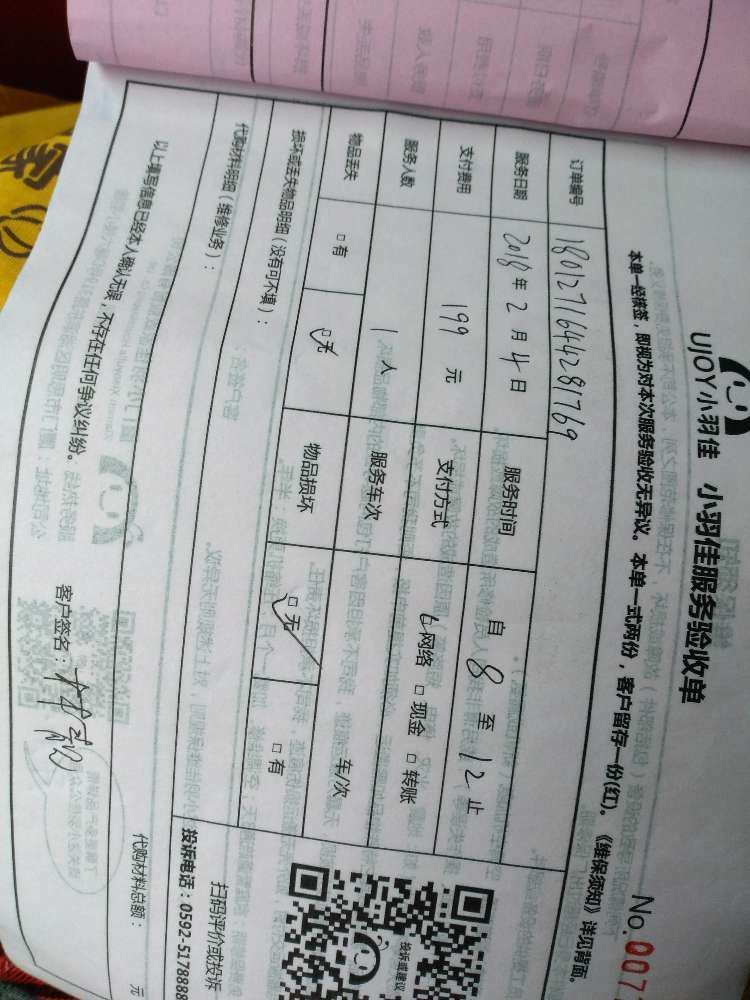 UJOY小羽佳 小羽佳服务验收单
No.007
本单一经核签，即视为对本次服务验收无异议。本单一式两份，客户留存一份(红)。《维保须知》详见背面。
订单编号 1801271644281769
服务日期 2018年2月4日 服务时间 自8至12止
支付费用 199元 支付方式 网络 □现金 □转账
服务人数 1人 服务车次 车/次
物品丢失 □有 □无 物品损坏 □无 □有
损坏或丢失物品明细（没有可不填）：
代购材料明细（维修业务）：
代购材料总额： 元
以上填写信息已经本人确认无误，不存在任何争议纠纷。
客户签名：
投诉或建议
扫码评价或投诉
投诉电话：0592-5178888